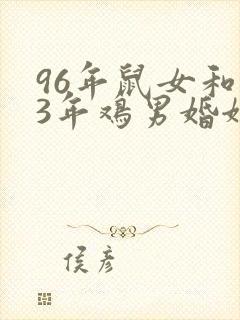 96年鼠女和
3年鸡男婚
侯彦